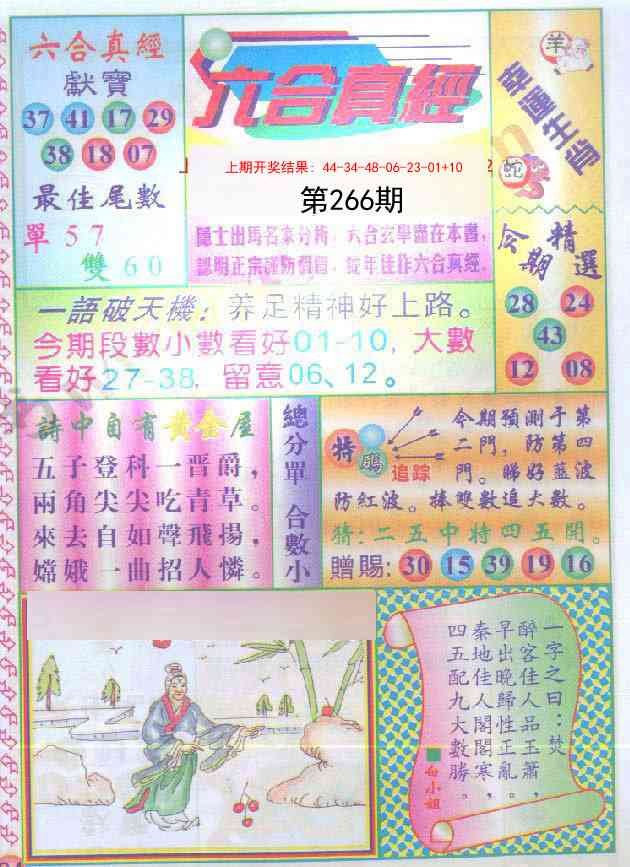 六合真經
獻寶
37 41 17 29
38 18 07
最佳尾數
單57
雙60
六合真經
上期开奖结果：44-34-48-06-23-01+10
第266期
隱士出馬名家分析，六合玄學盡在本書，
認明正宗謹防假冒，蛇年佳作六合真經.
羊
幸運生肖
蛇
今期精選
28 24
43
12 08
一語破天機：养足精神好上路。
今期段數小數看好01-10，大數
看好27-38，留意06、12。
詩中自有黃金屋
五子登科一晋爵，
兩角尖尖吃青草。
來去自如聲飛揚，
嫦娥一曲招人憐。
總分單 合數小
特
碼
追踪
今期預測于第
二門，防第四
門。睇好藍波
防紅波。棒雙數追大數。
猜：二五中特四五開。
贈賜：30 15 39 19 16
一字之曰：焚
醉客佳人品玉簫，
早出晚歸性正亂，
秦地佳人閣閣寒，
四五配九大數勝。
白小姐